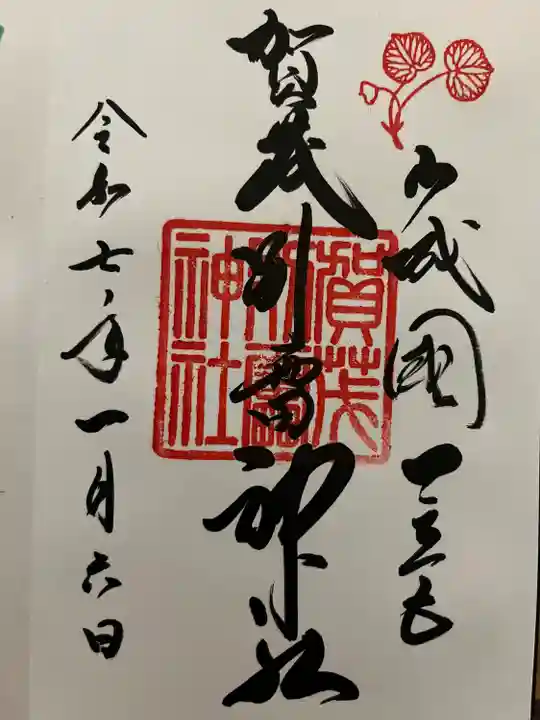 山城國一之宮
賀茂別雷神社
賀茂別雷神社
令和七年一月六日